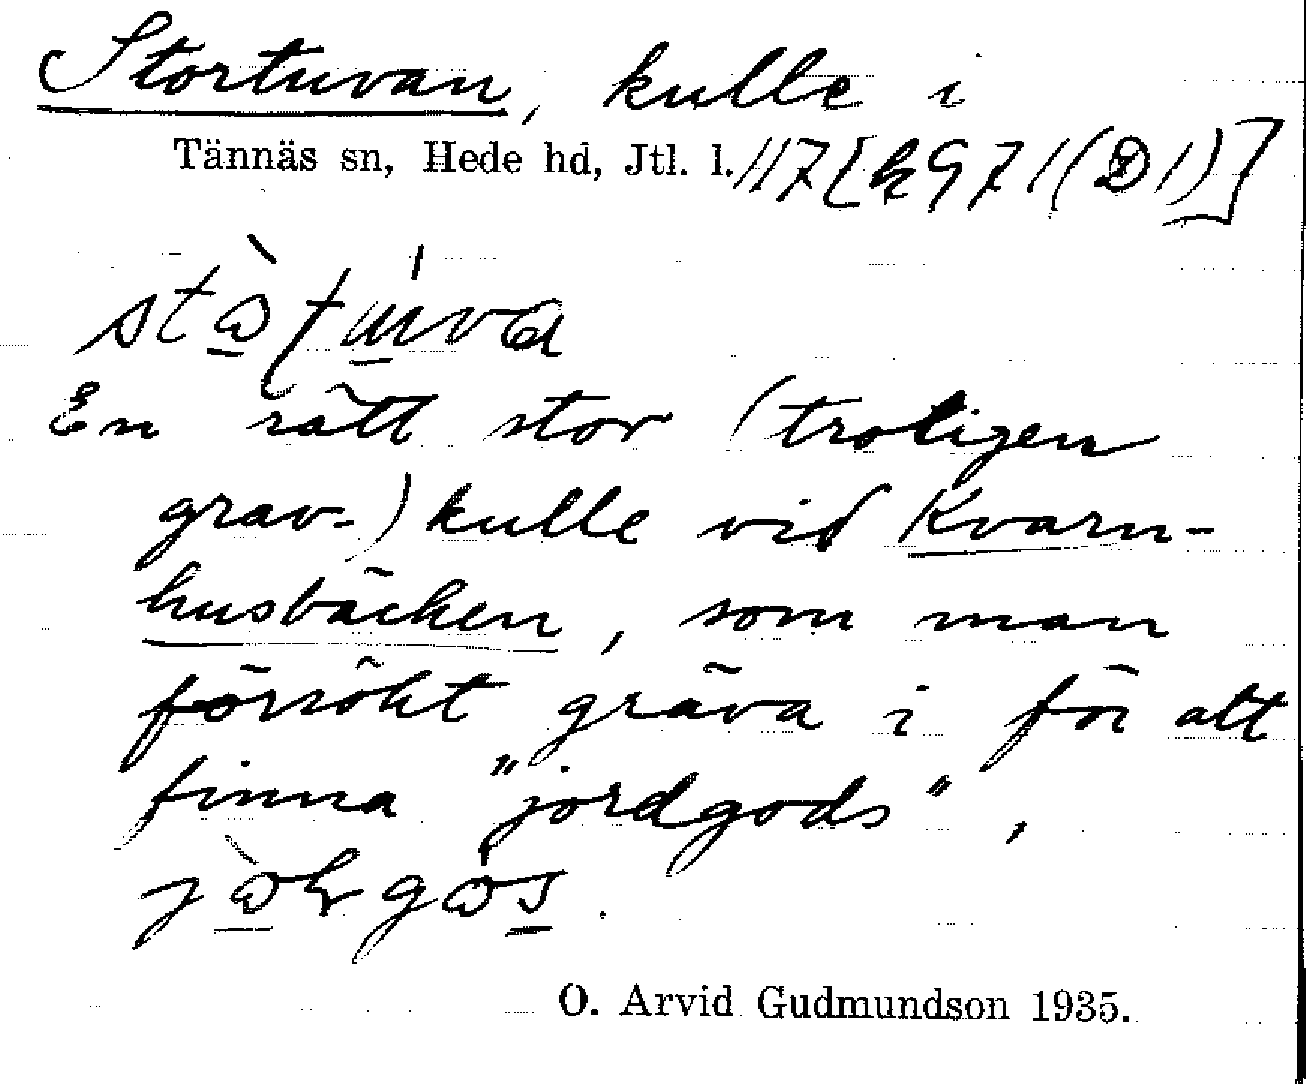 Stortuvan, kulle i
Tännäs sn, Hede hd, Jtl. l. 117 [k 971 (D1)]
En rätt stor (troligen
grav-) kulle vid Kvarn-
husbäcken, som man
försökt gräva i för att
finna "jordgods",
O. Arvid Gudmundson 1935.